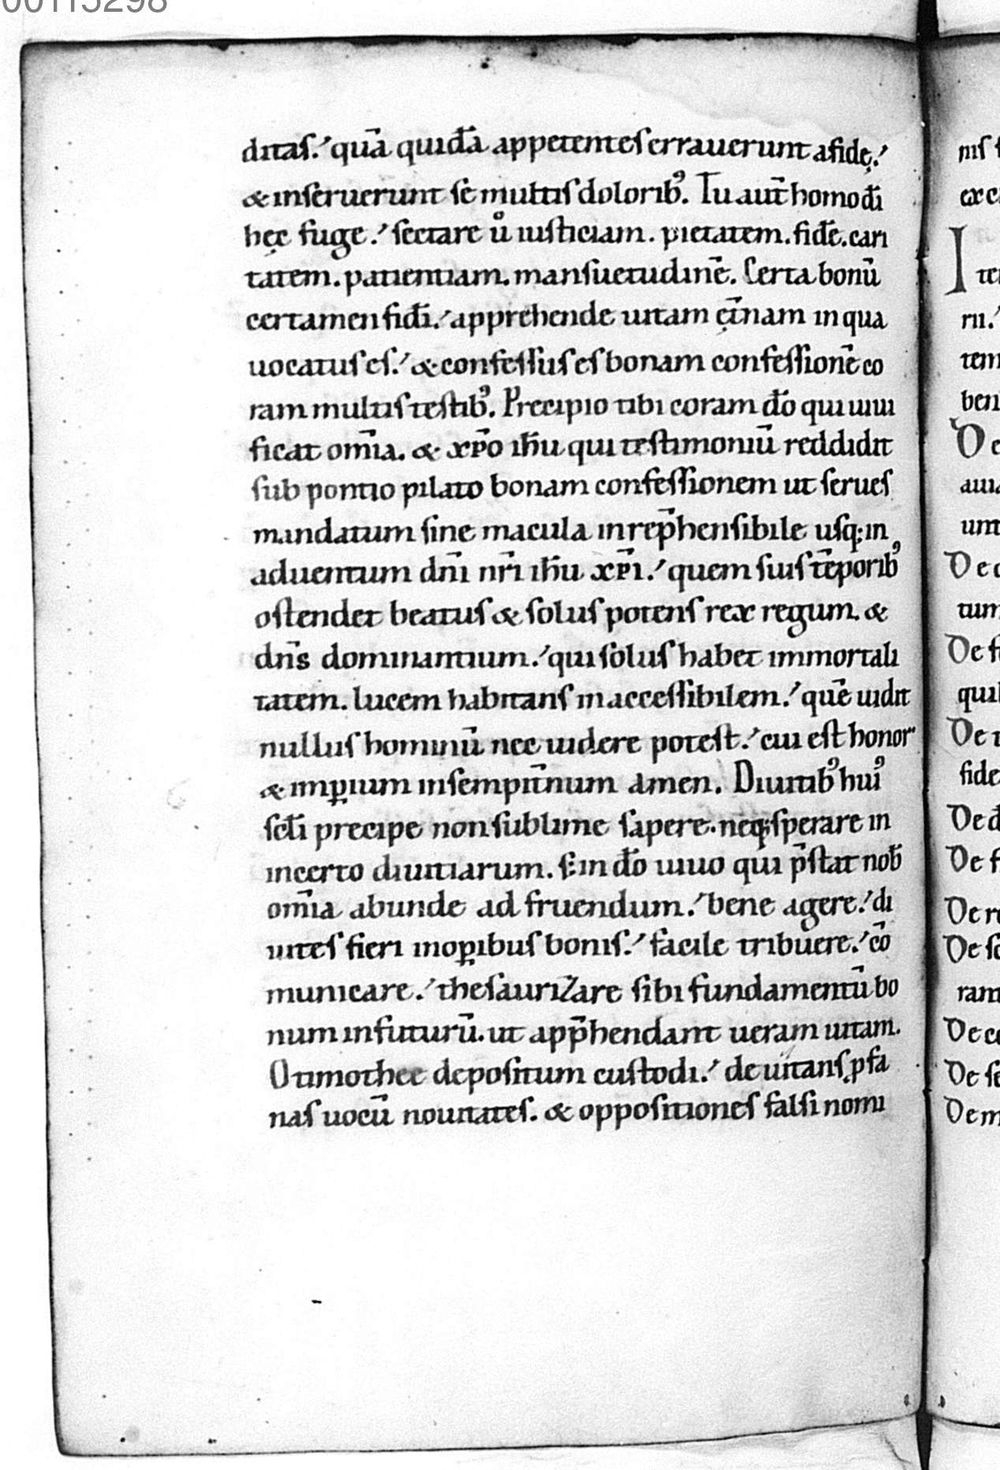 00115298
ditaſ.' quā quidā appetenteſ erraverunt a fidę.'
& inſeruerunt ſe multiſ doloribꝰ. Tu aut̄ homo dī
hęc fuge.' ſectare ů iuſticiam. pietatem. fidē. cari
tatem. patientiam. manſuetudinē. Certa bonū
certamen fidī.' apprehende uitam ęt̄nam in qua
uocatuſ eſ.' & confeſſuſ eſ bonam confeſſionē co
ram multiſ teſtibꝰ. Precipio tibi coram dō qui uiui
ficat om̄ia. & xp̄o ih̄u qui teſtimoniū reddidit
ſub pontio pilato bonam confeſſionem ut ſerueſ
mandatum ſine macula inrep̄henſibile uſq; in
aduentum dn̄i nr̄i ih̄u xp̄i.' quem ſuiſ tēporibꝰ
oſtendet beatuſ & ſoluſ potenſ rex regum. &
dn̄s dominantium.' qui ſoluſ habet immortali
tatem. lucem habitanſ inacceſſibilem.' quē uidit
nulluſ hominū nec uidere poteſt.' cui eſt honor
& imꝑium in ſempit̄num amen. Diuitibꝰ huiꝰ
ſcl̄i precipe non ſublime ſapere. neq; ſperare in
incerto diuitiarum. ſ; in dō uiuo qui p̄ſtat nob̄
om̄ia abunde ad fruendum.' bene agere.' di
uiteſ fieri in oꝑibus boniſ.' facile tribuere.' cō
municare.' theſaurizare ſibi fundamentū bo
num in futurū. ut app̄hendant ueram uitam.
O timothee depoſitum cuſtodi.' deuitanſ ꝓfa
nas uocū nouitateſ. & oppoſitioneſ falſi nomi